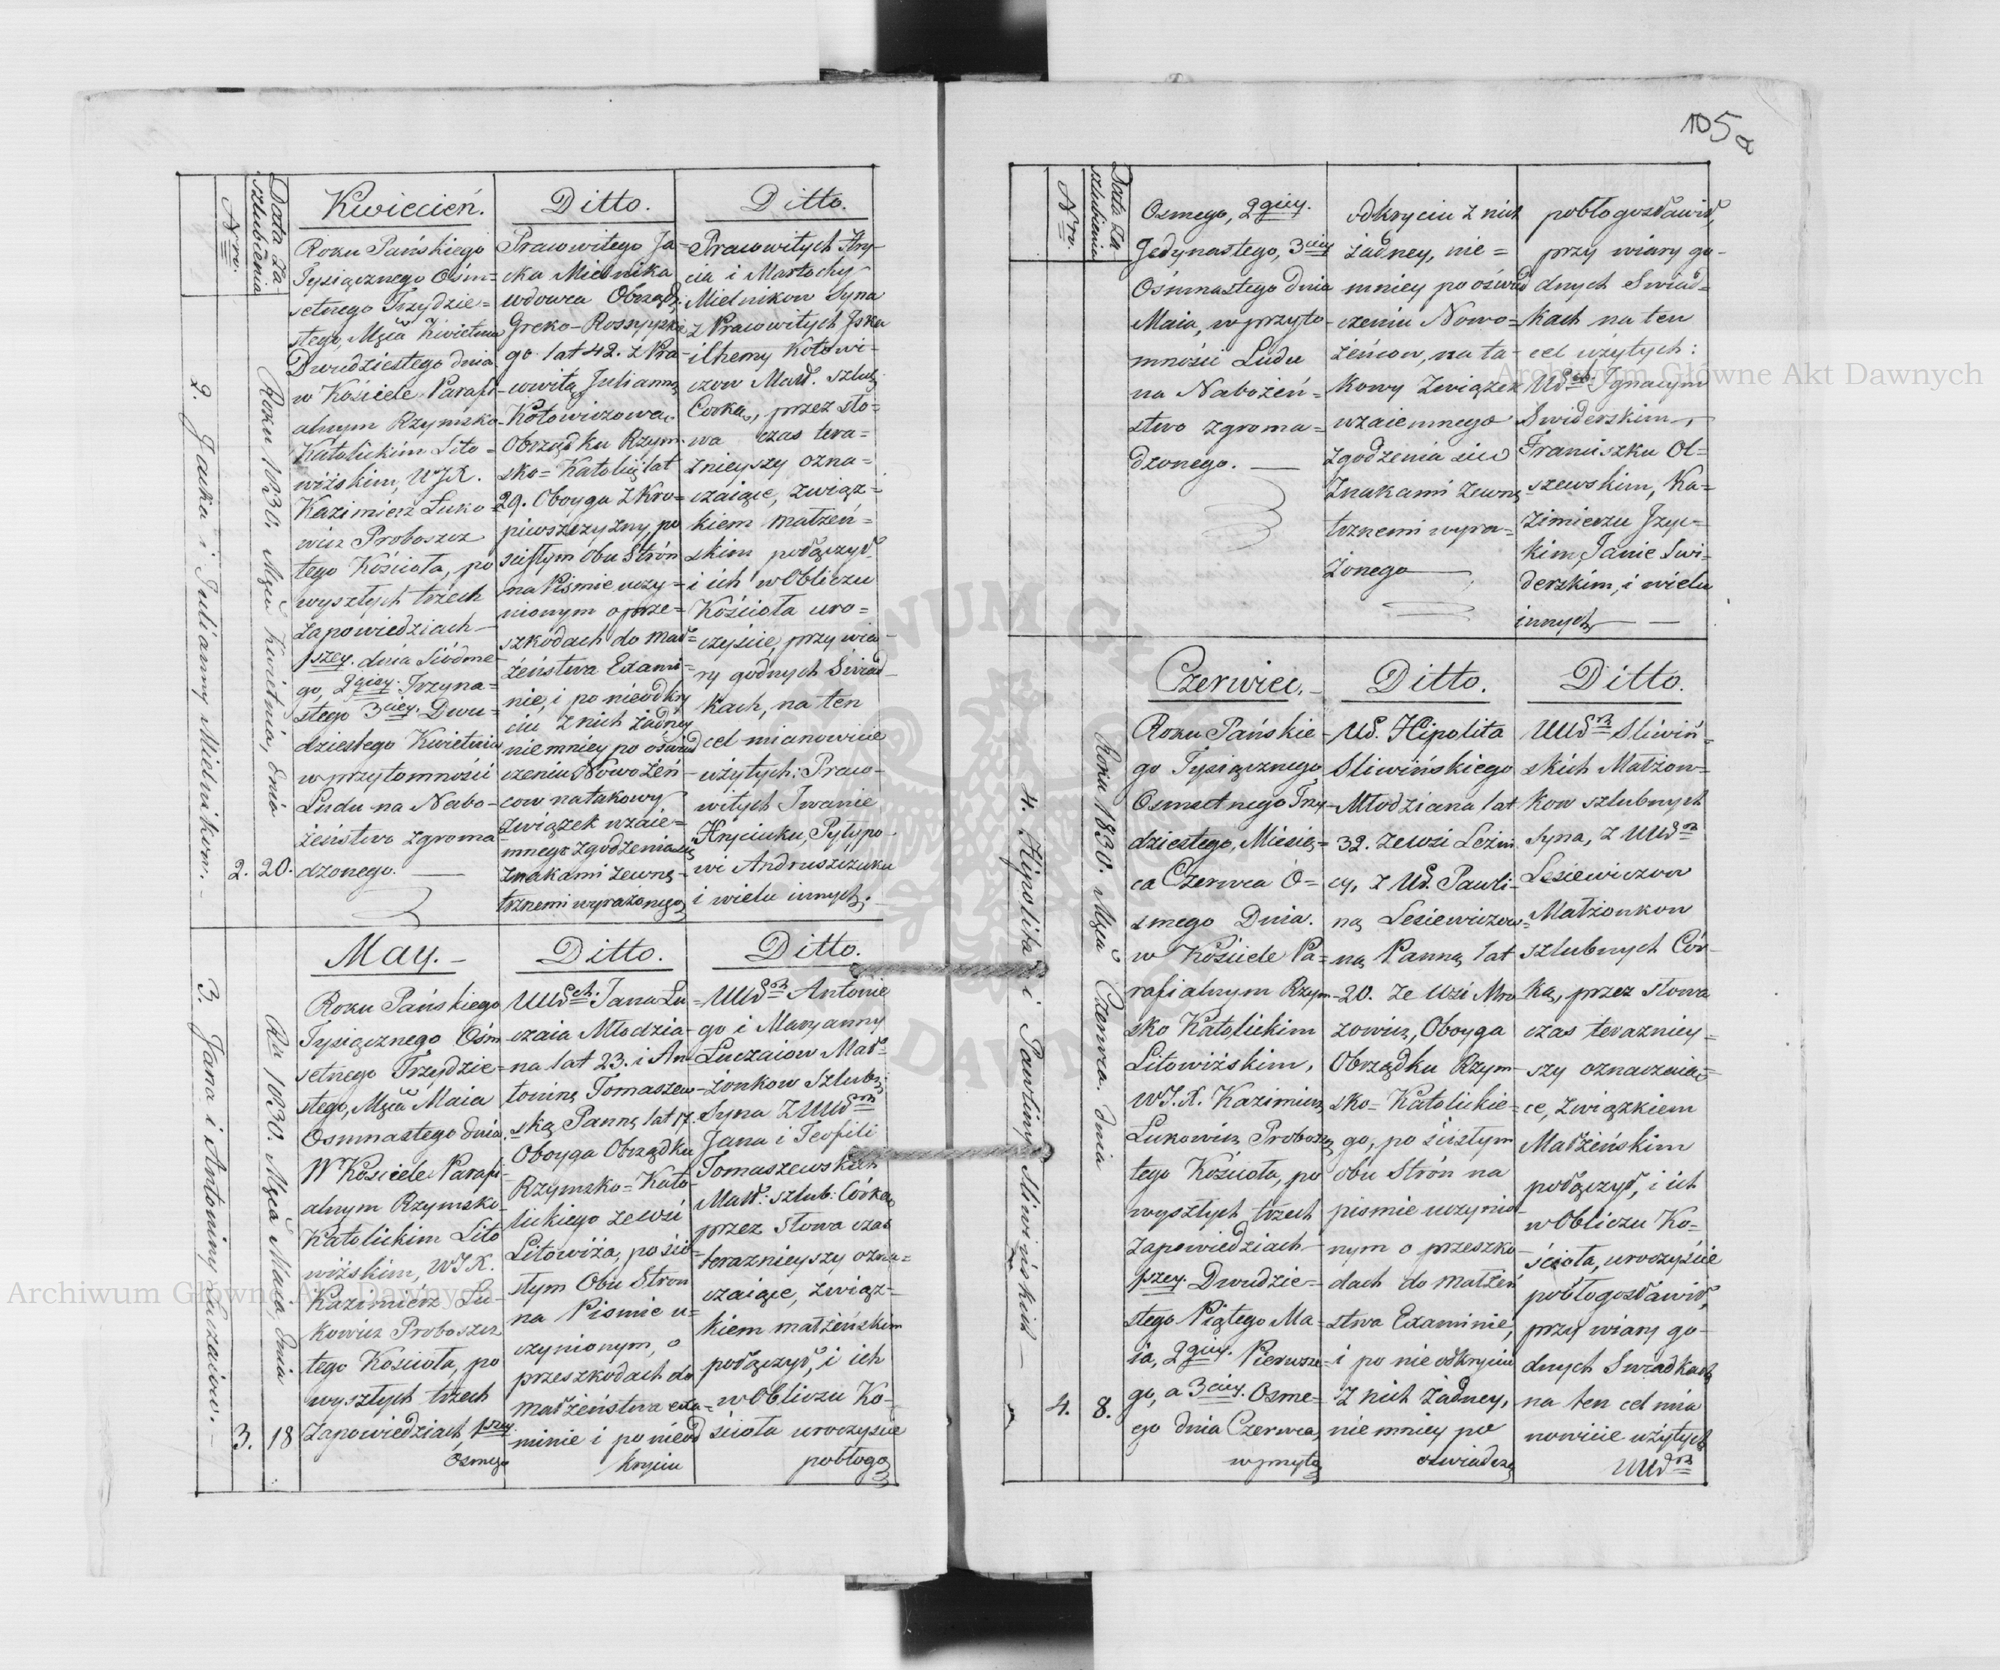 105a
Data Zaszlubienia
Nro.
Kwiecień.
Roku Pańskiego
Tysiącznego Ośm=
setnego Trzydzie=
stego, Msca Kwietnia
Dwudziestego dnia
w Kościele Parafi-
alnym Rzymsko-
Katolickim Lito=
wiżskim, WJX.
Kazimierz Łuko=
wicz Proboszcz
tego Kościoła, po
wyszłych trzech
zapowiedziach
1szey. dnia Siódme-
go, 2giey. Trzyna=
stego 3ciey. Dwu=
dziestego Kwietnia
w przytomności
Ludu na Nabo-
żeństwo zgroma
dzonego.
Ditto.
Pracowitego Ja=
cka Mielnika
wdowca Obrząd:
Greko-Rossyyskie
go lat 42. z Pra-
cowitą Julianną
Kołowiczową
Obrządku Rzym-
sko=Katolic: lat
29. Oboyga z Kro=
piwszczyzny, po
scisłym obu Strón
na Piśmie uczy=
nionym o prze=
szkodach do mał=
żeństwa Exami=
nie, i po nieodkry
ciu z nich żadney
niemniey po oświad
czeniu Nowożeń-
cow na takowy
związek wzaie=
mnego zgodzenia się
znakami zewnę-
trznemi wyrażonego,
Ditto.
Pracowitych Hry-
cia i Martochy
Mielnikow Syna
z Pracowitych Jśka
i Chemy Kołowi-
czow Małż. szlub:
Corką, przez sło-
wa czas tera=
znieyszy ozna=
czaiące, związ=
kiem małżeń=
skim połączył
i ich w Obliczu
Kościoła uro=
czyście, przy wia-
ry godnych Świad-
kach, na ten
cel mianowicie
użytych: Praco-
witych Jwanie
Hryciuku, Pyłypo-
wi Andruszczuku
i wielu innych.
2. Jacka i Julianny Mielnikow.
2.
Roku 1830. Msca Kwietnia, dnia
20.
May.
Roku Pańskiego
Tysiącznego Ośm
setnego Trzydzie=
stego, Msca Maia
Osmnastego dnia.
W Kościele Parafi-
alnym Rzymsko-
Katolickim Lito
wiżskim, WJX.
Kazimierz Łu-
kowicz Proboszcz
tego Kościoła, po
wyszłych trzech
Zapowiedziach, 1szey
Osmego
Ditto.
UUd ch. Jana Łu
czaia Młodzia-
na lat 23. i An
toniną Tomaszew-
ską Panną lat 17.
Oboyga Obrządku
Rzymsko=Kato-
lickiego ze wsi
Litowiża, po ści-
słym Obu Stron
na Piśmie u=
czynionym, o
przeszkodach do
małżeństwa exa=
minie i po nieod
kryciu
Ditto.
UUd ch Antonie
go i Maryanny
Łuczaiow Mał=
żonkow Szlub:
Syna z UUd ch
Jana i Teofili
Tomaszewskich
Małż: szlub: Córką
przez słowa czas
teraznieyszy ozna=
czaiące, związ-
kiem małżeńskim
połączył, i ich
w Obliczu Ko-
ścioła uroczyscie
pobłogo
3. Jana i Antoniny Łuczaiow.
3.
Ru 1830. Msca Maia, dnia
18
Data Zaszlubienia
Nro.
Osmego, 2giey.
Jedynastego, 3ciey
Ośmnastego dnia
Maia, w przyto-
mności Ludu
na Nabożeń-
stwo zgroma=
dzonego.
odkryciu z nich
żadney, nie=
mniey po oświad
czeniu Nowo=
żeńcow, na ta-
kowy związek
wzaiemnego
zgodzenia się
znakami zewnę
trznemi wyra=
żonego
pobłogosławił,
przy wiary go-
dnych Swiad=
kach na ten
cel użytych:
UUd ch. Jgnacym
Swiderskim,
Franciszku Ol=
szewskim, Ka=
zimierzu Jzyc=
kim, Janie Swi-
derskim, i wielu
innych
Czerwiec.
Roku Pańskie-
go Tysiącznego
Osmsetnego Trzy-
dziestego, Miesią=
ca Czerwca Ó=
smego Dnia.
w Kościele Pa=
rafialnym Rzym-
sko Katolickim
Litowiżskim,
WJX. Kazimierz
Łukowicz Proboszcz
tego Kościoła, po
wyszłych trzech
Zapowiedziach
1szey. Dwudzie=
stego Piątego Ma-
ia, 2giey. Pierwsze=
go, a 3ciey. Osme-
go dnia Czerwca,
w przyto
Ditto.
Ud. Hipolita
Sliwińskiego
Młodziana lat
32. ze wsi Leżni
cy, z Ud. Pauli-
ną Lesiewiczow=
ną Panną lat
20. ze Wsi Mro
zowicz, Oboyga
Obrządku Rzym-
sko=Katolickie=
go, po ścisłym
obu Strón na
piśmie uczynio-
nym o przeszko-
dach do małżeń
stwa Examinie,
i po nie odkryciu
z nich żadney,
nie mniey po
oświadcze
Ditto.
UUd ch Sliwiń=
skich Małżon=
kow szlubnych
Syna, z UUd ch
Lesiewiczow
Małżonkow
szlubnych Cór-
ką, przez słowa
czas terazniey-
szy oznaczaią=
ce, związkiem
Małżeńskim
połączył, i ich
w Obliczu Ko-
ścioła, uroczyście
pobłogosławił,
przy wiary go-
dnych Swiadkach
na ten cel mia
nowicie użytych
UUd ch
4. Hipolita i Pauliny Sliwińskich
4.
Roku 1830. Msca Czerwca. dnia
8.
Archiwum Główne Akt Dawnych
Archiwum Główne Akt Dawnych